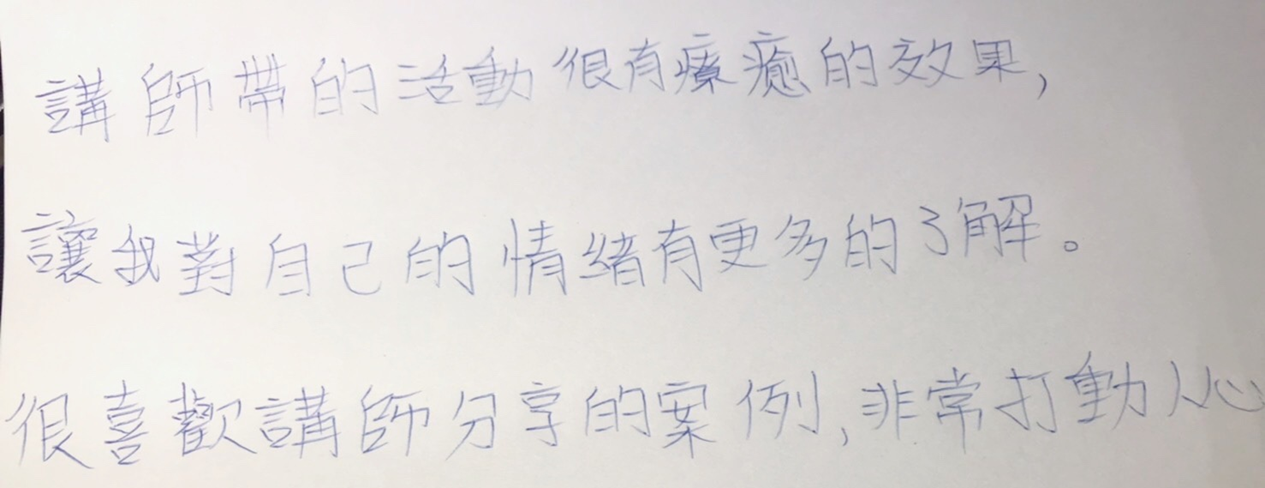 講師帶的活動很有療癒的效果,
讓我對自己的情緒有更多的了解。
很喜歡講師分享的案例,非常打動人心